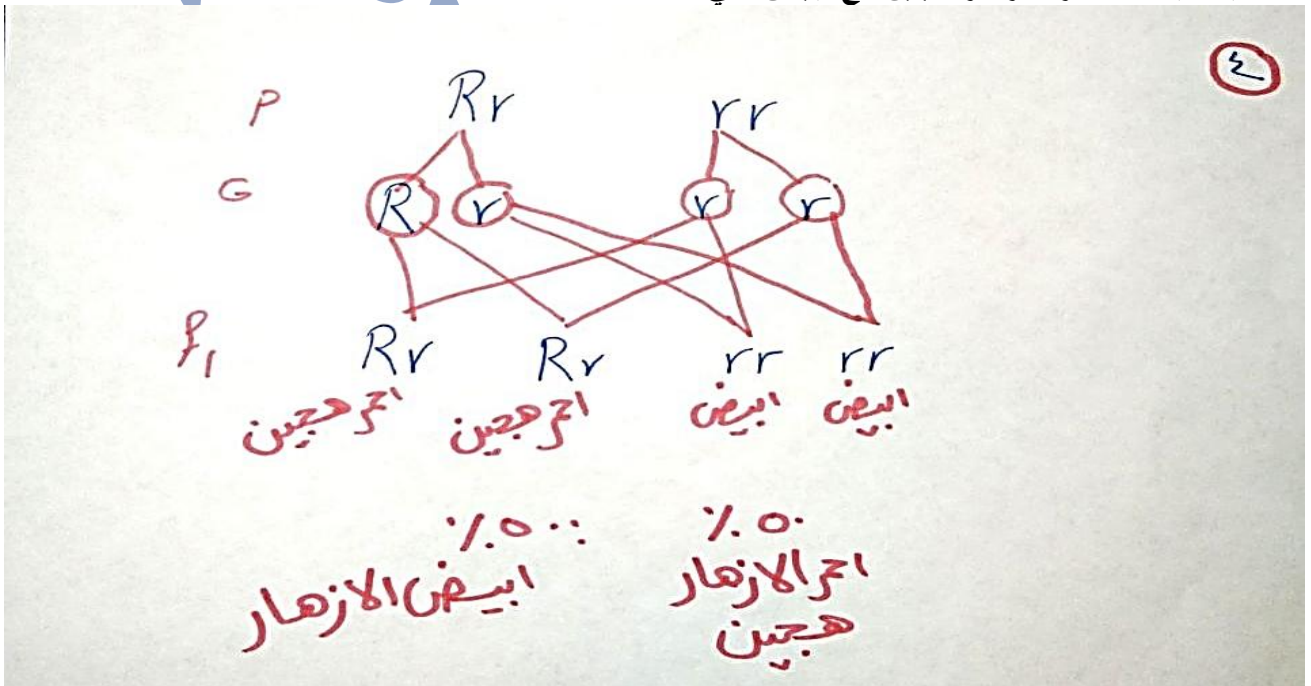 ٤
P Rr rr
G R r r r
f₁ Rr Rr rr rr
احمر هجين احمر هجين ابيض ابيض
٥٠٪ : ٥٠٪
احمر الازهار ابيض الازهار
هجين